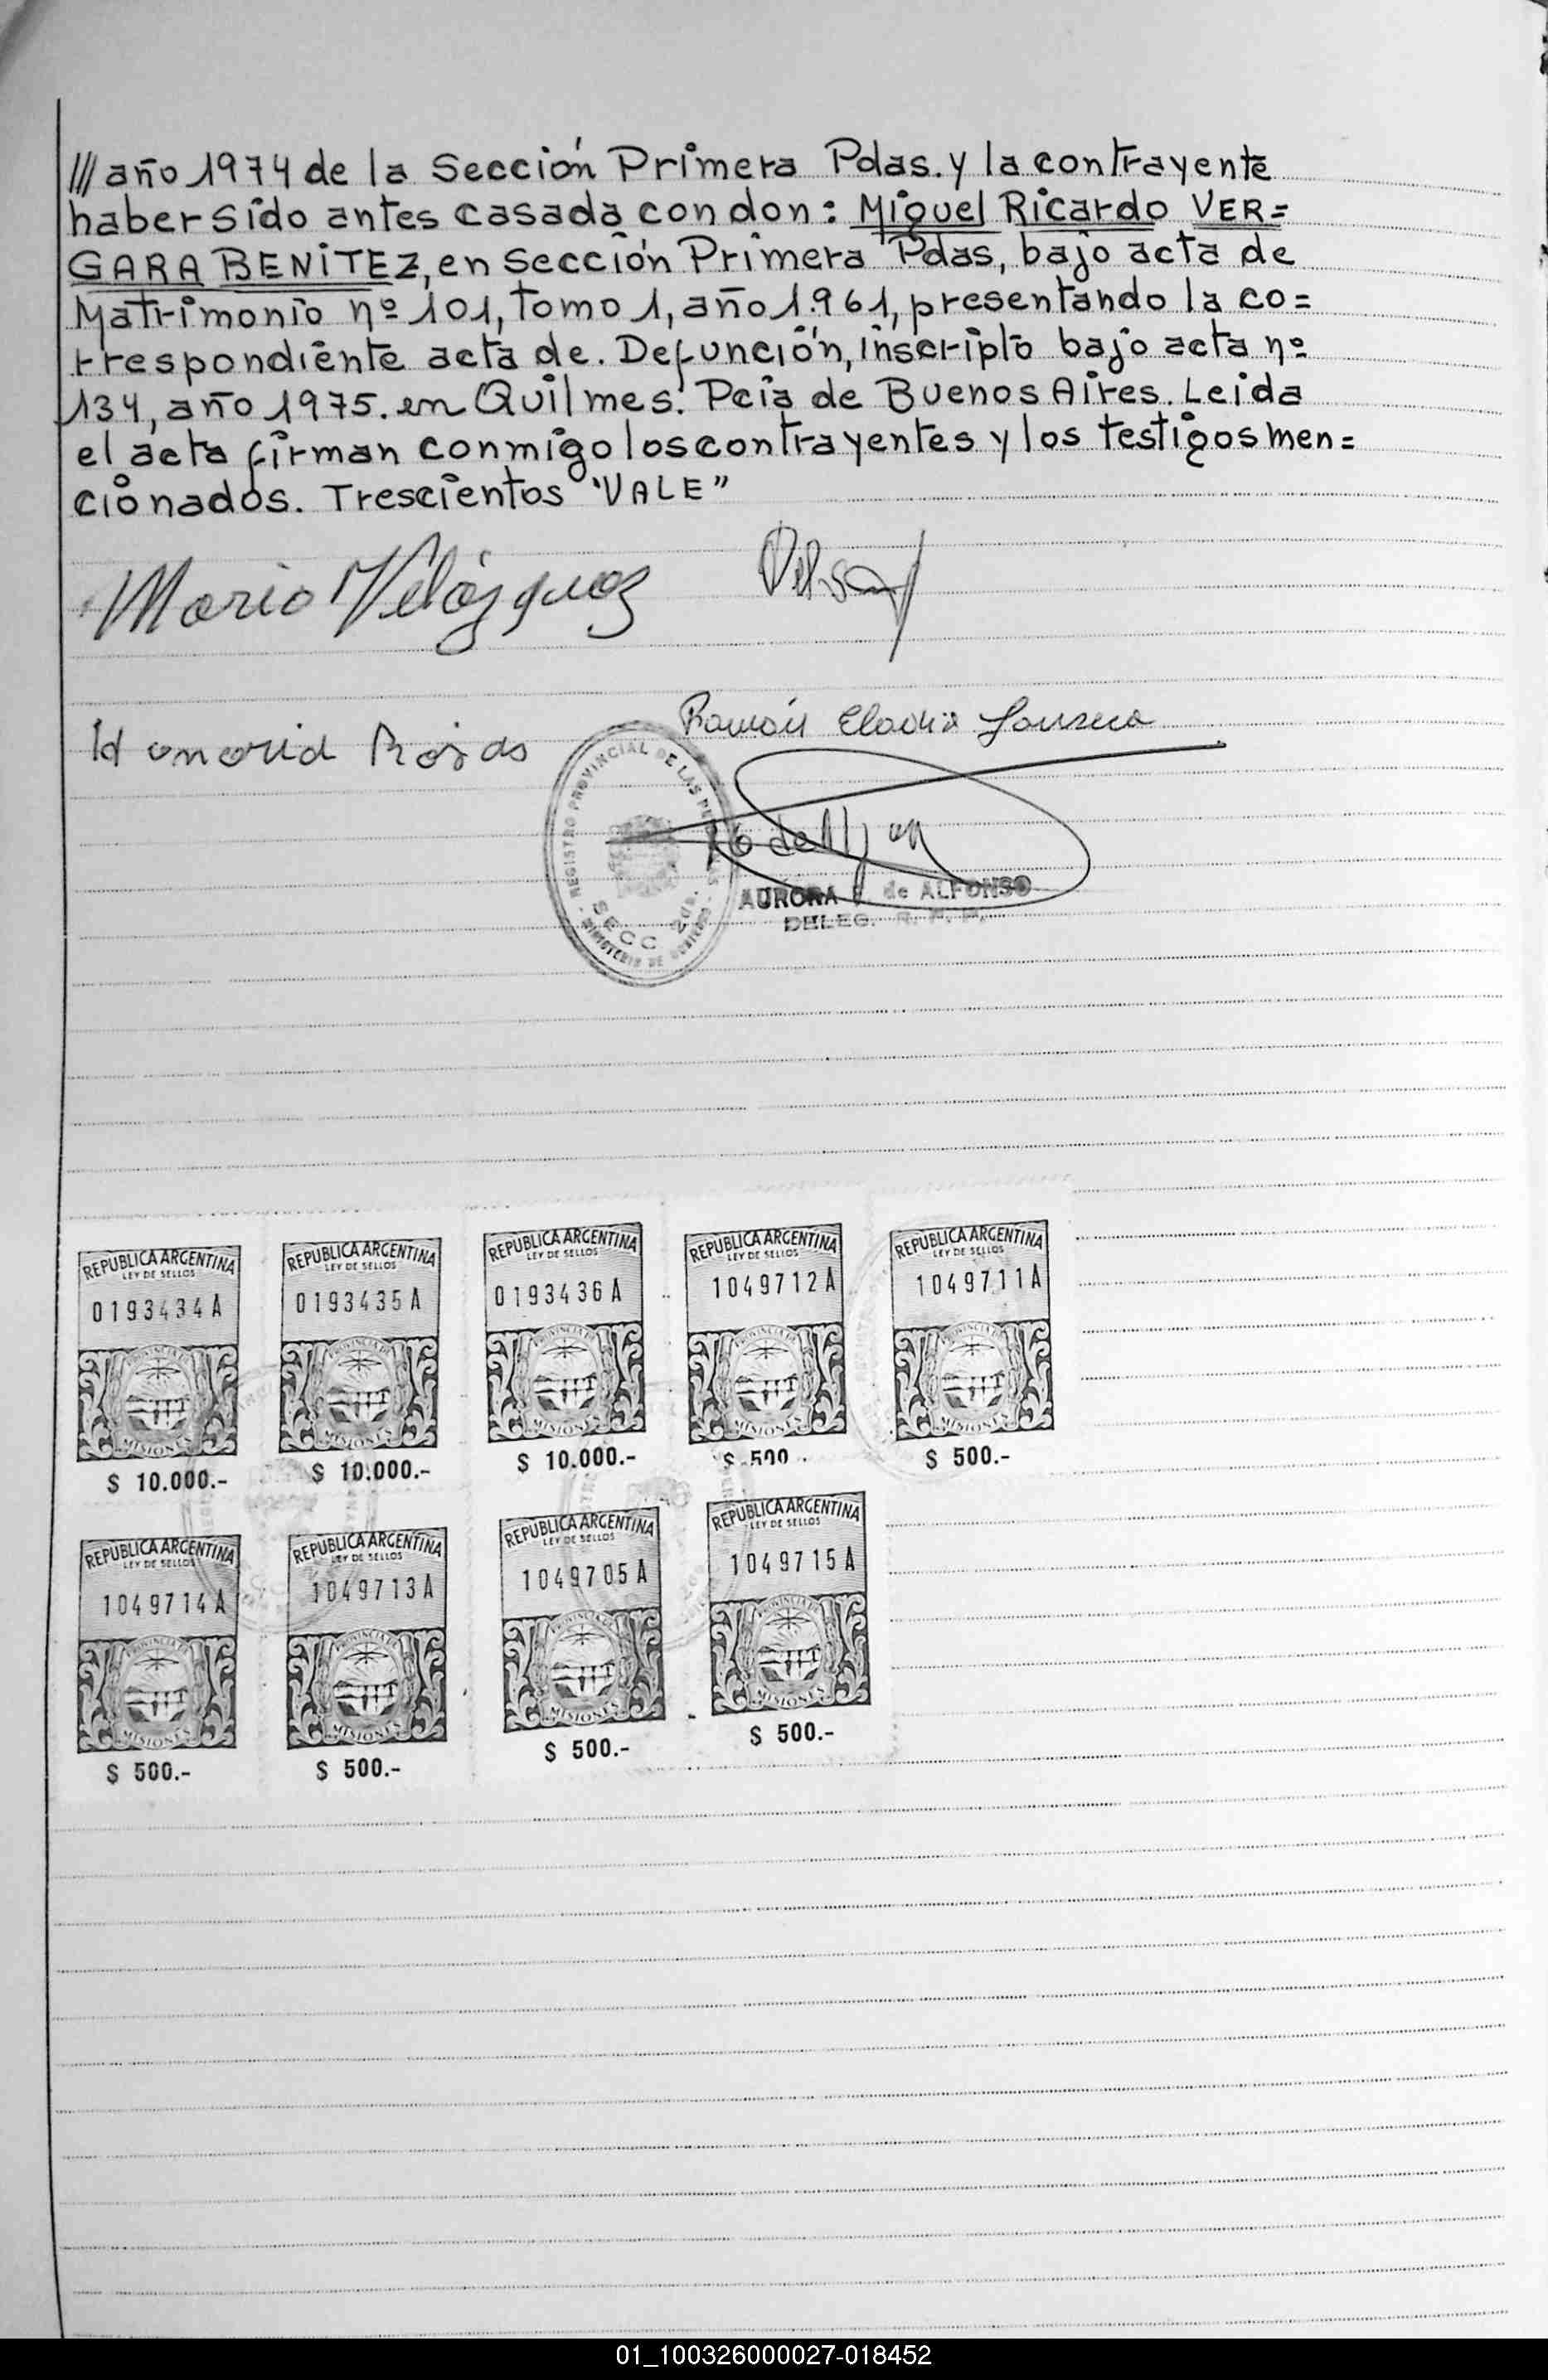 /// año 1974 de la Sección Primera Pdas. y la contrayente
haber sido antes casada con don: Miguel Ricardo VER=
GARA BENITEZ, en Sección Primera Pdas, bajo acta de
Matrimonio nº 101, tomo 1, año 1.961, presentando la co=
rrespondiente acta de. Defunción, inscripto bajo acta nº
134, año 1975. en Quilmes. Pcia de Buenos Aires. Leida
el acta firman conmigo los contrayentes y los testigos men=
cionados. Trescientos "VALE"
Mario Velázquez
Ramón Eladio Fonseca
Rojas
REGISTRO PROVINCIAL DE LAS
SECC 2da.
MINISTERIO DE GOBIERNO
AURORA de ALFONSO
DELEG. R. P. P.
REPUBLICA ARGENTINA REPUBLICA ARGENTINA REPUBLICA ARGENTINA REPUBLICA ARGENTINA REPUBLICA ARGENTINA
LEY DE SELLOS LEY DE SELLOS LEY DE SELLOS LEY DE SELLOS LEY DE SELLOS
0193434A 0193435A 0193436A 1049712A 1049711A
PROVINCIA DE PROVINCIA DE PROVINCIA DE PROVINCIA DE PROVINCIA DE
MISIONES MISIONES MISIONES MISIONES MISIONES
$ 10.000.- $ 10.000.- $ 10.000.- $ 500.- $ 500.-
REPUBLICA ARGENTINA REPUBLICA ARGENTINA REPUBLICA ARGENTINA REPUBLICA ARGENTINA
LEY DE SELLOS LEY DE SELLOS LEY DE SELLOS LEY DE SELLOS
1049714A 1049713A 1049705A 1049715A
PROVINCIA DE PROVINCIA DE PROVINCIA DE PROVINCIA DE
MISIONES MISIONES MISIONES MISIONES
$ 500.- $ 500.- $ 500.- $ 500.-
01_100326000027-018452